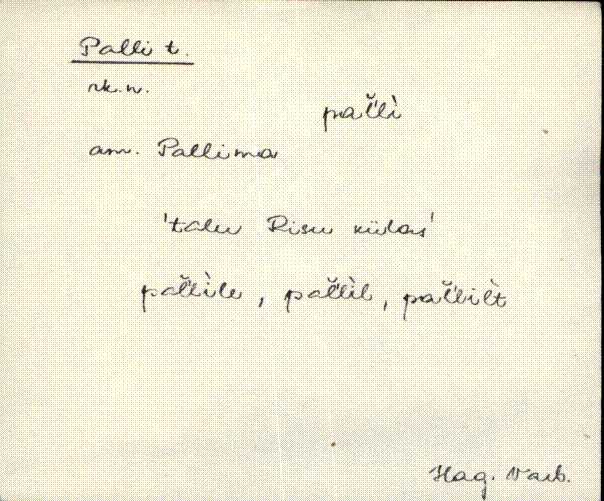 Palli t.
rk.n.
pal̆l̆ì
am. Pallima
'talu Risu külas'
pal̆l̆ìle, pal̆l̆ìl, pal̆l̆ilt
Hag. Varb.